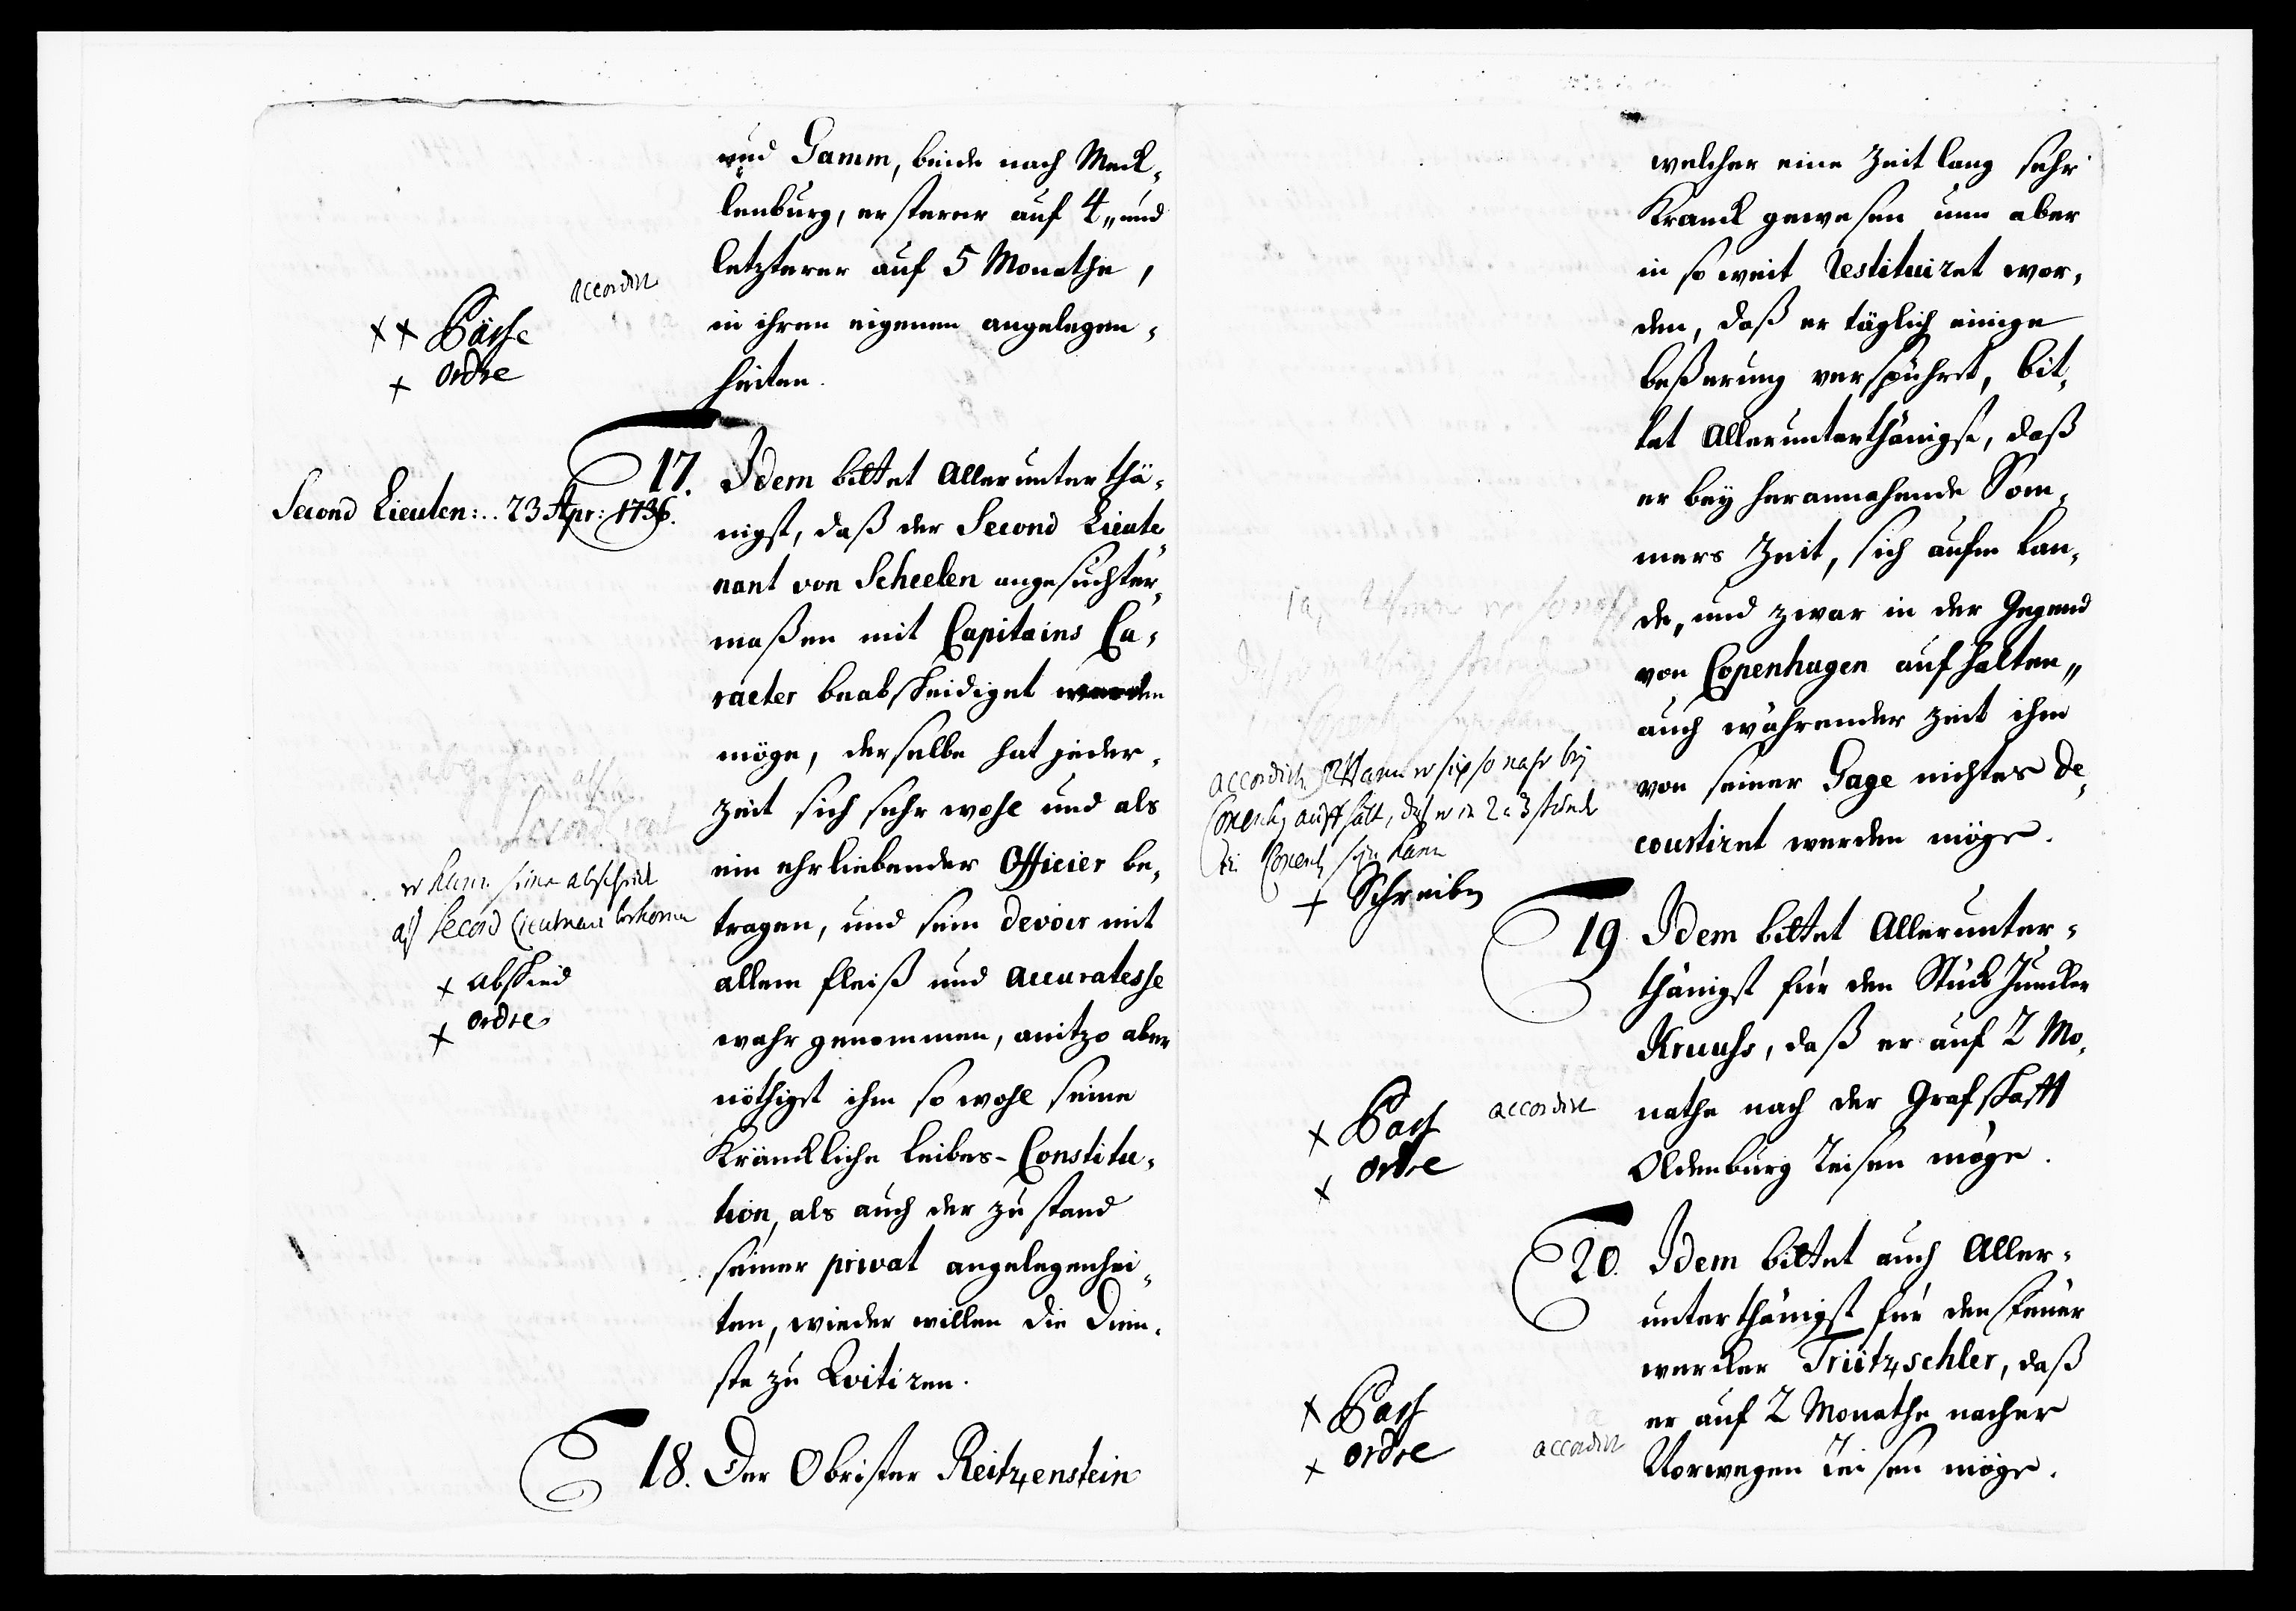 und Gamm, beide nach Meck,
lenburg, ersterer auf 4„ und
letzterer auf 5 Monathe,
in ihren eigenen angelegen,
heiten.
accordirt
++ Pässe
+ ordre
17. Idem bittet allerunterthä,
nigst, daß der Second Lieute,
nant von Scheelen angesuchter,
maßen mit Capitains Ca,
racter beabscheidiget werden
möge, derselbe hat jeder,
zeit sich sehr wohl und als
ein ehrliebender Officier be,
tragen, und sein devoir mit
allem fleiß und accuratesse
wahr genommen, anitzo aber
nöthiget ihm so wohl seine
Kränckliche leibes-Constitu,
tion, als auch der zustand
seiner privat angelegenhei,
ten, wieder willen die Dien,
ste zu Qvitiren.
Second Lieuten:.. 23 Apr: 1736.
er kann seine abscheid
als Second Lieutnant bekomen
+ abscheid
+ ordre
18. Der Obrister Reitzenstein
welcher eine Zeit lang sehr
Kranck gewesen nun aber
in so weit restituiret wor,
den, daß er täglich einige
beßerung verspühret, bit,
tet allerunterthänigst, daß
er beÿ herannahende Som,
mers Zeit, sich aufm lan,
de, und zwar in der Gegend
von Copenhagen aufhalten„
auch währender zeit ihm
von seiner Gage nichtes de,
courtiret werden möge.
accordirt wann er sich so nahe bey
Copenh auffhält, daß er in 2 a 3 stunde
in Copenh seyn kann
+ Schreiben
19. Idem bittet allerunter,
thänigst für den Stück Juncker
Kruuhs, daß er auf 2 Mo,
nathe nach der Grafschafft
Oldenburg reisen möge.
accordirt
+ Pass
+ ordre
20. Idem bittet auch Aller,
unterthänigst für den Feuer
wercker Triitzschler, daß
er auf 2 Monathe nacher
Norwegen reisen möge.
+ Pass
+ ordre
accordirt